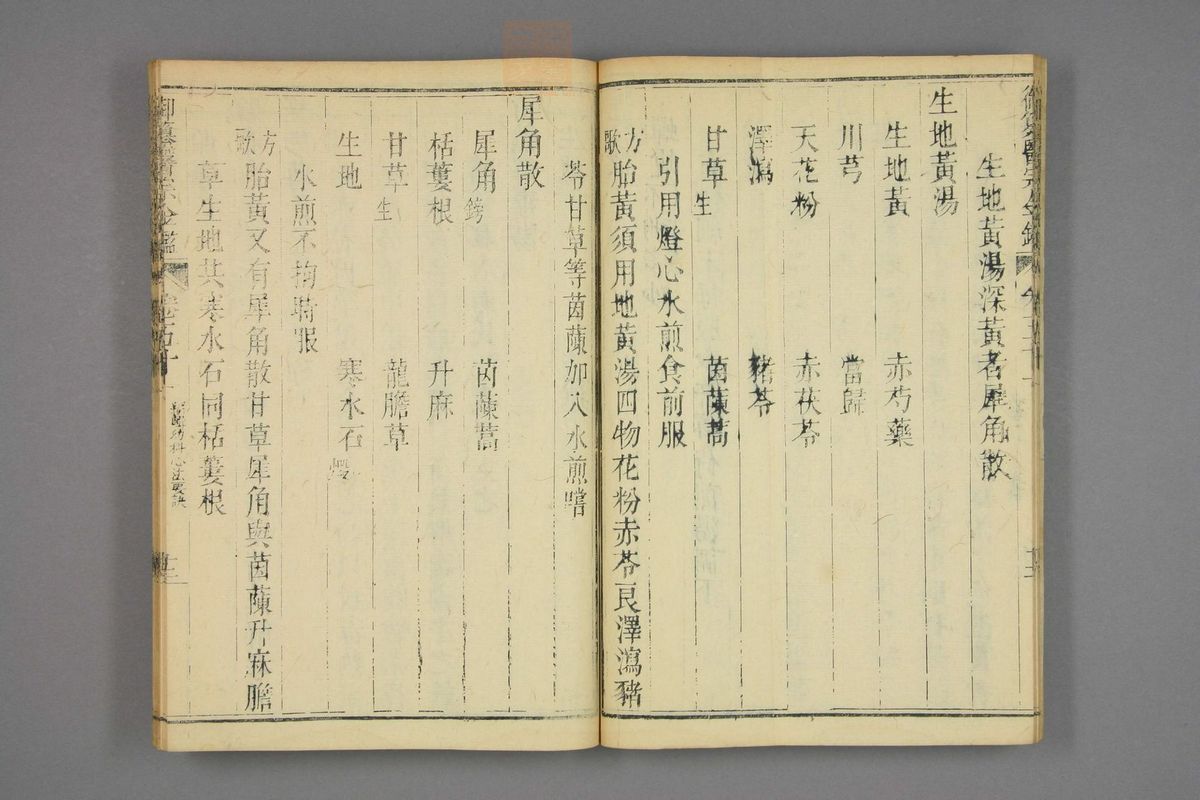 生地黃湯深黃者犀角散
生地黃湯
生地黃 赤芍藥
川芎 當歸
天花粉 赤茯苓
澤瀉 豬苓
甘草生 茵蔯蒿
引用燈心水煎食前服
方歌 胎黃須用地黃湯四物花粉赤苓良澤瀉豬
苓甘草等茵蔯加入水煎嘗
犀角散
犀角鎊 茵蔯蒿
栝蔞根 升麻
甘草生 龍膽草
生地 寒水石煅
水煎不拘時服
方歌 胎黃又有犀角散甘草犀角與茵蔯升麻膽
草生地共寒水石同栝蔞根
御纂醫宗金鑑
幼科心法要訣